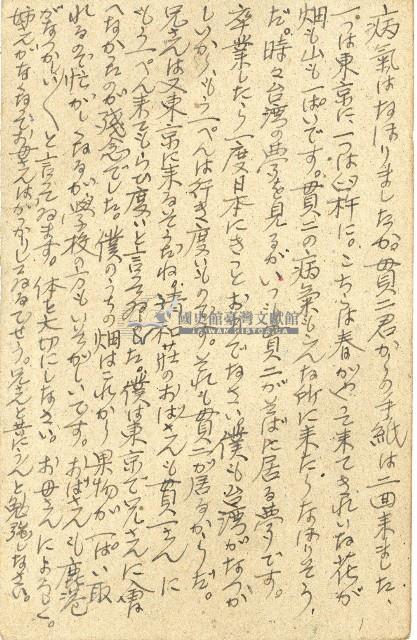 病氣はなほりましたか。貫二君からの手紙は二面来ました、
一つは東京に、一つは臼杵に。こちらは春がやって来てきれいな花が
畑も山も一ぱいです。貫二の病氣もこんな所に来たらなほりそう
だ。時々台湾の夢を見るがいつも貫二がそばに居る夢です。
卒業したら一度日本にきっとおいでなさい。僕も台湾がなつか
しいから、もう一ぺんは行き度いものです。それも貫二が居るからだ。
兄さんは又東京に来るそうだね。荘のおばさんも貫一さんに
もう一ぺん来てもらひ度いと言ってゐました。僕は東京で兄さんに會
へなかったのが残念でした。僕のうちの畑はこれから果物が一ぱい取
れるので忙がしくなるが学校の方もいそがしいです。おばさんも鹿港
がなつかしいと言ってゐます。体を大切にしなさい。お母さんによろしく。
姉さんがなくなってお母さんはがっかりしてゐるでせう。兄さんと共にうんと勉強しなさい。
國史館臺灣文獻館
TAIWAN HISTORICA